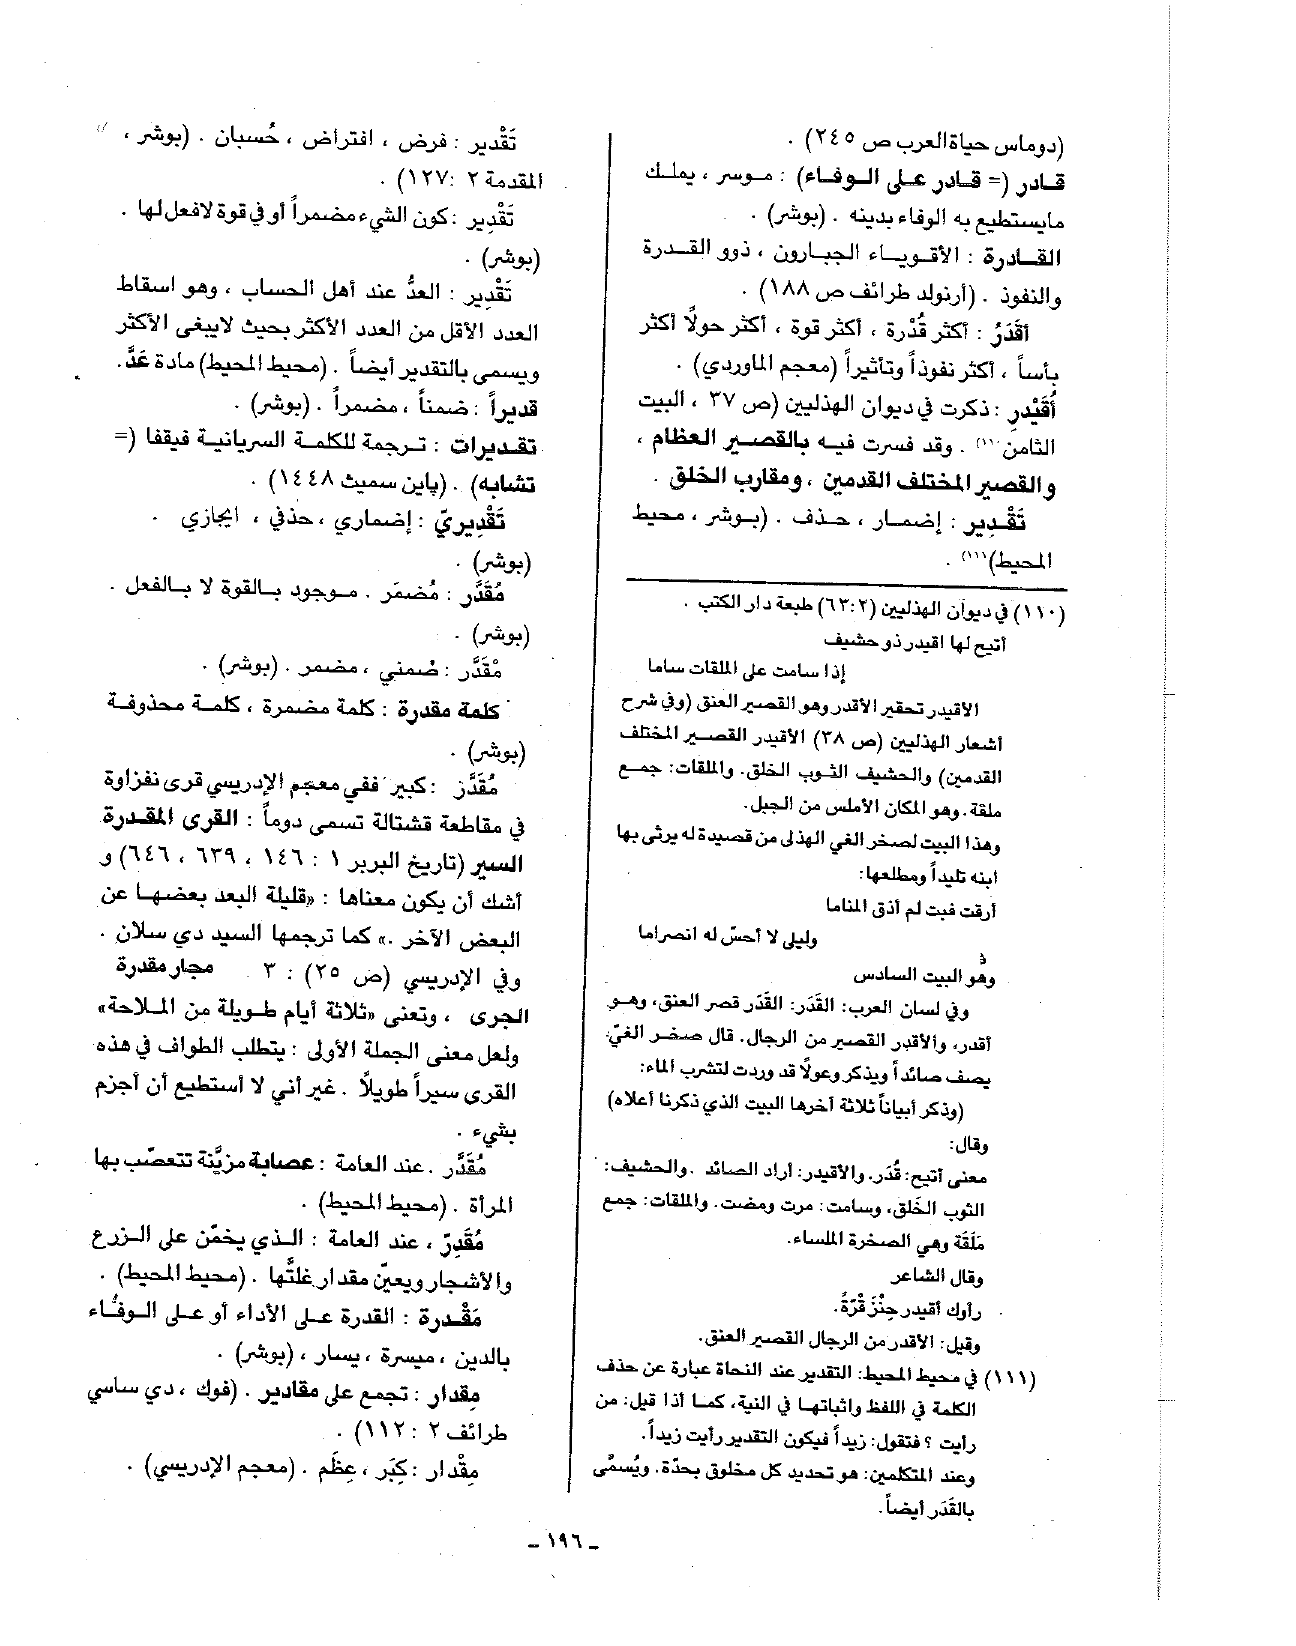 (دوماس حياة العرب ص ٢٤٥) .
قادر (= قادر على الوفاء) : موسر ، يملك
مايستطيع به الوفاء بدينه . (بوشر) .
القادرة : الأقوياء الجبارون ، ذوو القدرة
والنفوذ . (أرنولد طرائف ص ١٨٨) .
أقْدَرُ : أكثر قُدْرة ، أكثر قوة ، أكثر حولاً أكثر
بأساً ، أكثر نفوذاً وتأثيراً (معجم الماوردي) .
أُقَيْدر : ذكرت في ديوان الهذليين (ص ٣٧ ، البيت
الثامن (١١٠) . وقد فسرت فيه بالقصير العظام ،
والقصير المختلف القدمين ، ومقارب الخلق .
تَقْدير : إضمار ، حذف . (بوشر ، محيط
المحيط)(١١١) .
(١١٠) في ديوان الهذليين (٦٣:٢) طبعة دار الكتب .
أتيح لها اقيدر ذو حشيف
إذا سامت على الملقات ساما
الاقيدر تحقير الأقدر وهو القصير العنق (وفي شرح
أشعار الهذليين (ص ٣٨) الأقيدر القصير المختلف
القدمين) والحشيف الثوب الخلق. والملقات: جمع
ملقة. وهو المكان الأملس من الجبل.
وهذا البيت لصخر الغي الهذلى من قصيدة له يرثى بها
ابنه تليداً ومطلعها:
أرقت فبت لم أذق المناما
وليلى لا أحسّ له انصراما
وهو البيت السادس
وفي لسان العرب: القَدَر: القَدَر قصر العنق، وهو
أقدر، والأقدر القصير من الرجال. قال صخر الغيّ
يصف صائداً ويذكر وعولاً قد وردت لتشرب الماء:
(وذكر أبياتاً ثلاثة آخرها البيت الذي ذكرنا أعلاه)
وقال:
معنى أتيح: قُدَر. والأقيدر: أراد الصائد . والحشيف:
الثوب الخَلق، وسامت: مرت ومضت. والملقات: جمع
مَلَقَة وهي الصخرة الملساء.
وقال الشاعر
رأوك أقيدر حِنْزَ قْرَةً.
وقيل: الأقدر من الرجال القصير العنق.
(١١١) في محيط المحيط: التقدير عند النحاة عبارة عن حذف
الكلمة في اللفظ واثباتها في النية، كما أذا قيل: من
رأيت ؟ فتقول: زيداً فيكون التقدير رأيت زيداً.
وعند المتكلمين: هو تحديد كل مخلوق بحدّة. ويُسمّى
بالقَدَر أيضاً.
تَقْدير : فرض ، افتراض ، حُسبان . (بوشر ،
المقدمة ٢ :١٢٧) .
تَقْدِير : كون الشيء مضمراً أو في قوة لا فعل لها .
(بوشر) .
تَقْدِير : العدُّ عند أهل الحساب ، وهو اسقاط
العدد الأقل من العدد الأكثر بحيث لايبغى الأكثر
ويسمى بالتقدير أيضاً . (محيط المحيط) مادة عَدَّ.
قديراً : ضمناً ، مضمراً . (بوشر) .
تقديرات : ترجمة للكلمة السريانية فيقفا (=
تشابه) . (پاين سميث ١٤٤٨) .
تَقْدِيريّ : إضماري ، حذفي ، ايجازي .
(بوشر) .
مُقَدَّر : مُضمَر . موجود بالقوة لا بالفعل .
(بوشر) .
مُقَدَّر : ضمني ، مضمر . (بوشر) .
كلمة مقدرة : كلمة مضمرة ، كلمة محذوفة
(بوشر) .
مُقَدَّر : كبير ففي معجم الإدريسي قرى نفزاوة
في مقاطعة قشتالة تسمى دوماً : القرى المقدرة
السير (تاريخ البربر ١ : ١٤٦ ، ٦٣٩ ، ٦٤٦) و
أشك أن يكون معناها : «قليلة البعد بعضها عن
البعض الآخر .» كما ترجمها السيد دي سلان .
وفي الإدريسي (ص ٢٥) : ٣ مجار مقدرة
الجرى ، وتعنى «ثلاثة أيام طويلة من الملاحة»
ولعل معنى الجملة الأولى : يتطلب الطواف في هذه
القرى سيراً طويلاً . غير أني لا أستطيع أن أجزم
بشيء .
مُقَدَّر . عند العامة : عصابة مزيَّنة تتعصّب بها
المرأة . (محيط المحيط) .
مُقَدِرّ ، عند العامة : الذي يخمّن على الزرع
والأشجار ويعينّ مقدار غلتَّها . (محيط المحيط) .
مَقْدرة : القدرة على الأداء أو على الوفاء
بالدين ، ميسرة ، يسار ، (بوشر) .
مِقدار : تجمع على مقادير . (فوك ، دي ساسي
طرائف ٢ : ١١٢) .
مِقْدار : كِبَر ، عِظَم . (معجم الإدريسي) .
ـ ١٩٦ ـ